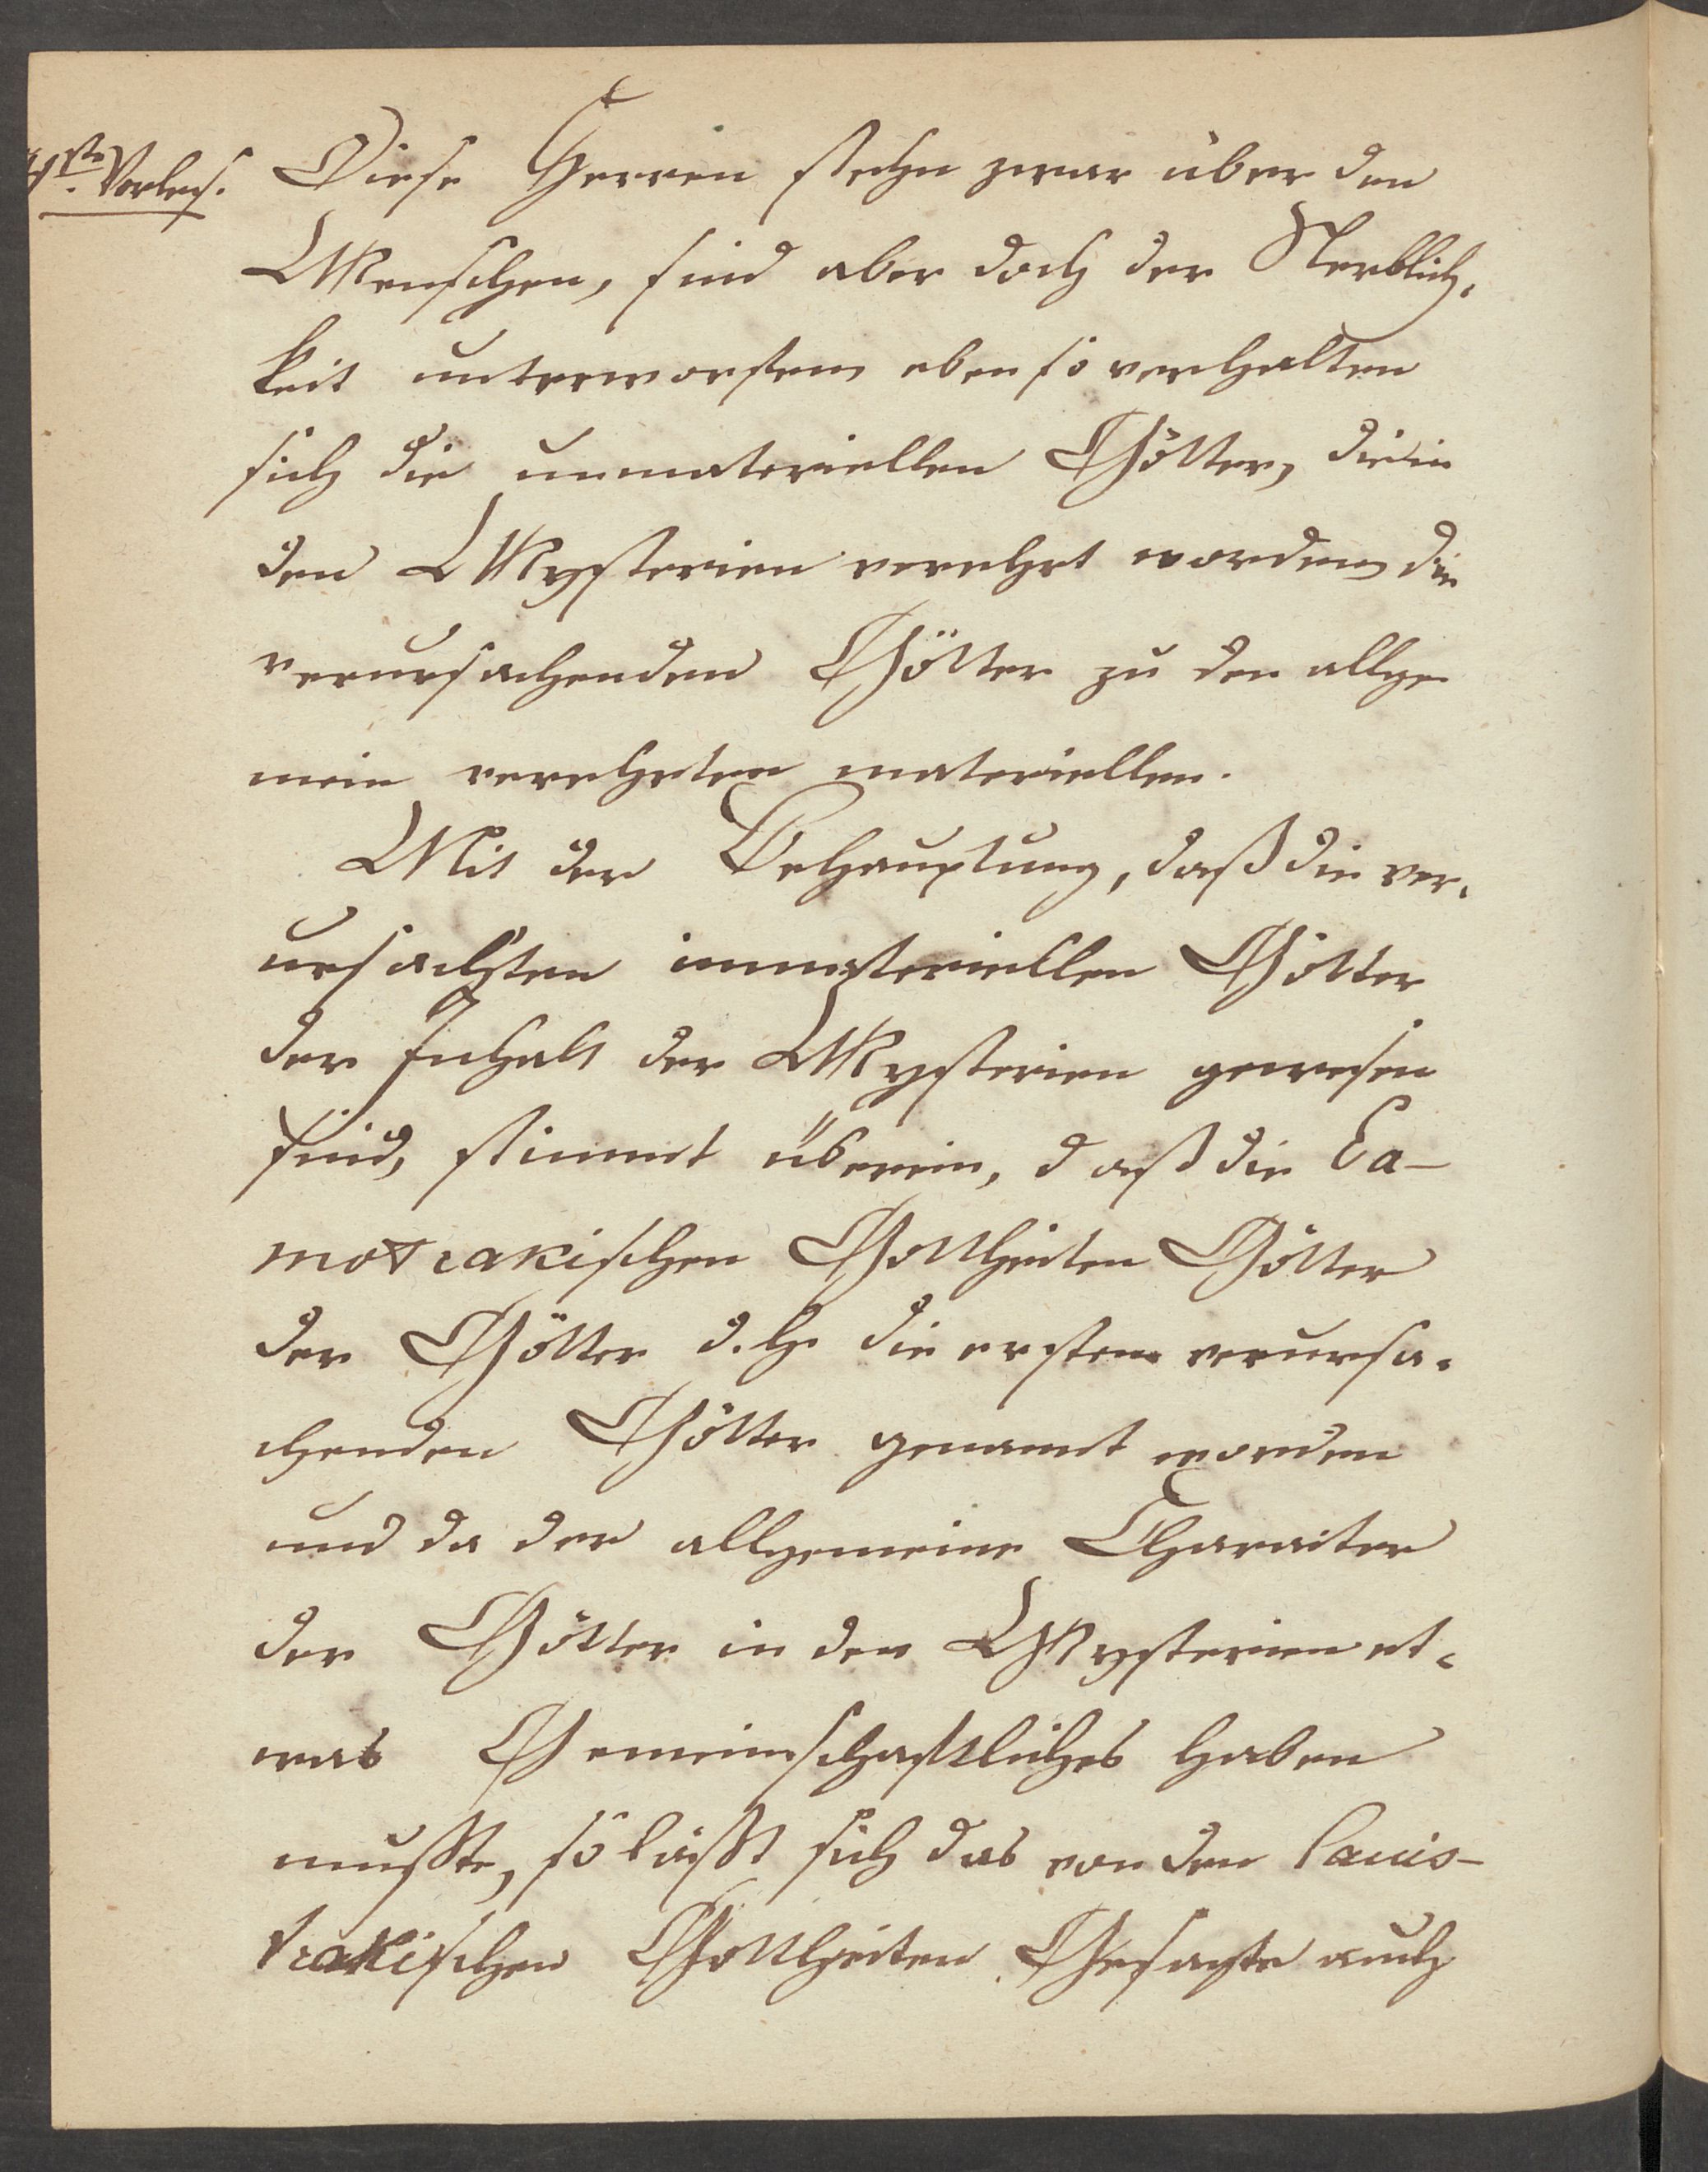 Vorles.
Diese Herren stehn zwar über den
Menschen, sind aber doch der Sterblich-
keit unterworfen, eben so verhalten
sich die immateriellen Götter, die in
den Mysterien verehrt worden, die
verursachenden Götter zu den allge
mein verehrten materiellen.
Mit der Behauptung, daß die ver-
ursachten immateriellen Götter
der Inhalt der Mysterien gewesen
sind, stimmt überein, daß die Sa-
motrakischen Gottheiten Götter
der Götter d.h. die ersten verursa-
chenden Götter genannt worden
und da der allgemeine Character
der Götter in den Mysterien et-
was Gemeinschaftliches haben
mußte, so läßt sich das von den
trakischen Gottheiten Gesagte auch